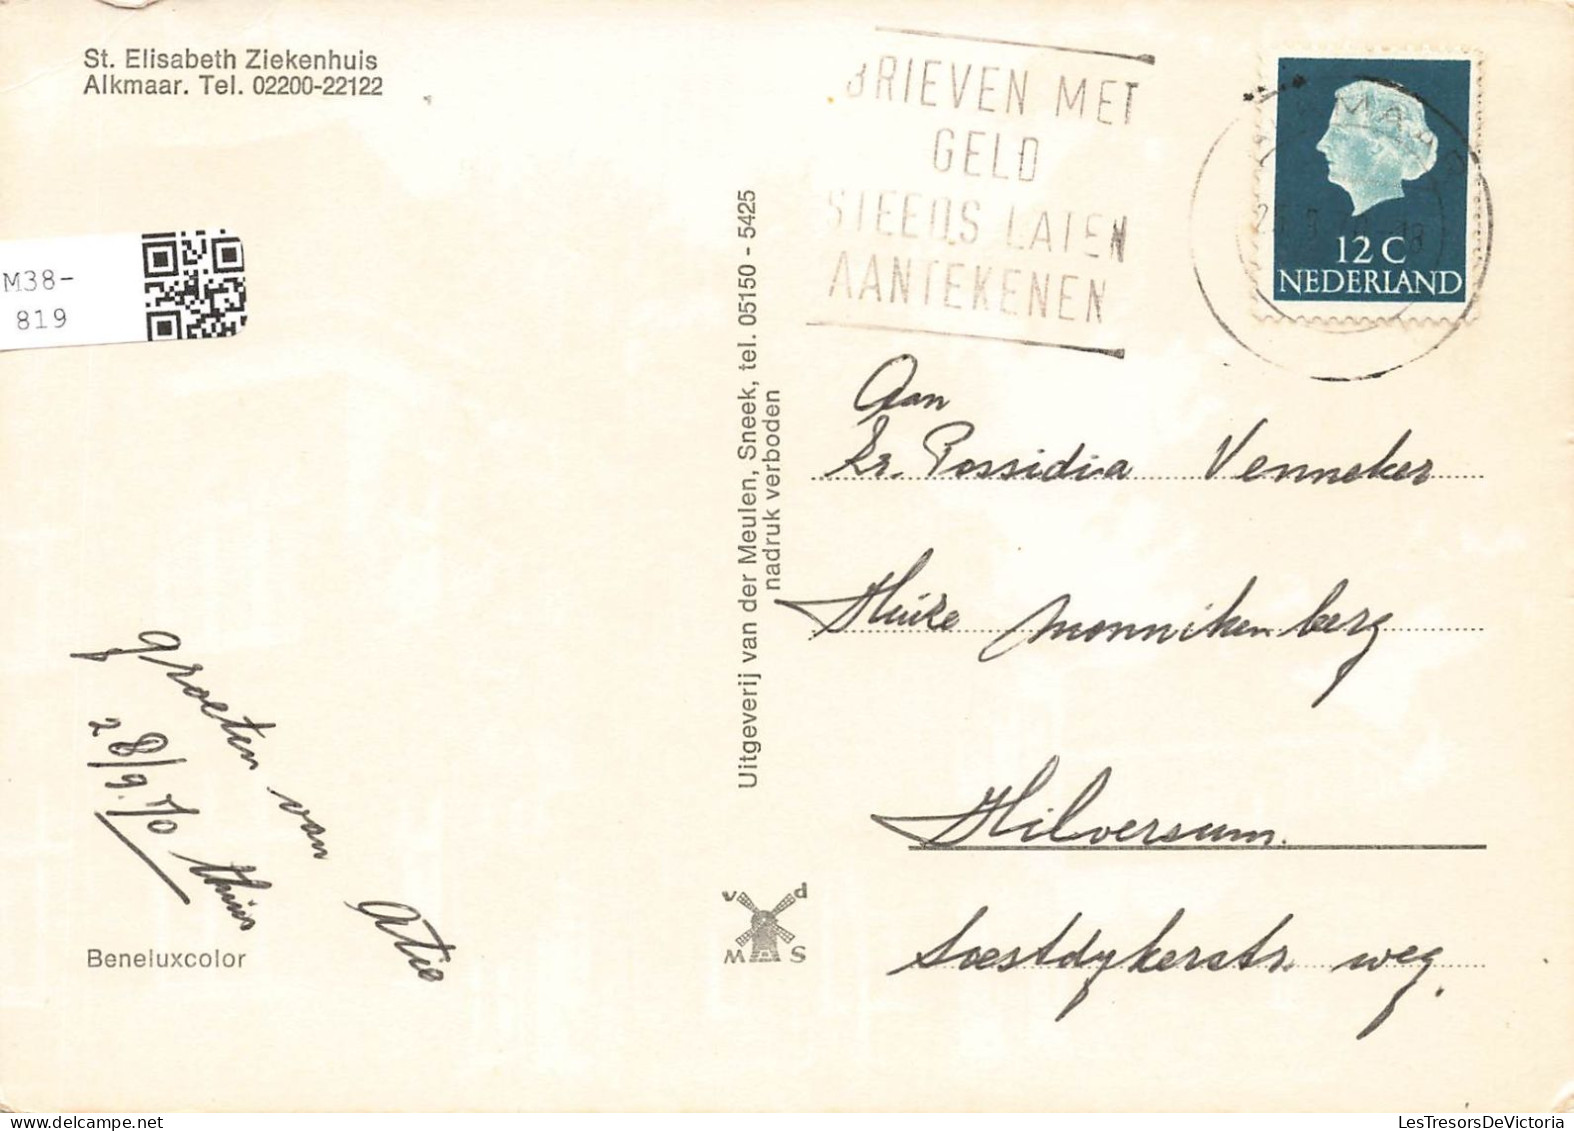 St. Elisabeth Ziekenhuis
Alkmaar. Tel. 02200-22122
M38-
819
BRIEVEN MET
GELD
STEEDS LATEN
AANTEKENEN
12 C
NEDERLAND
Uitgeverij van der Meulen, Sneek, tel. 05150 - 5425
nadruk verboden
Aan
Zr. Possidia Venneker
Huize Monnikenberg
Hilversum.
Soestdykerstr. weg.
groeten van Atie
28/9.'70 thuis
Beneluxcolor
v d
M S
LesTresorsDeVictoria